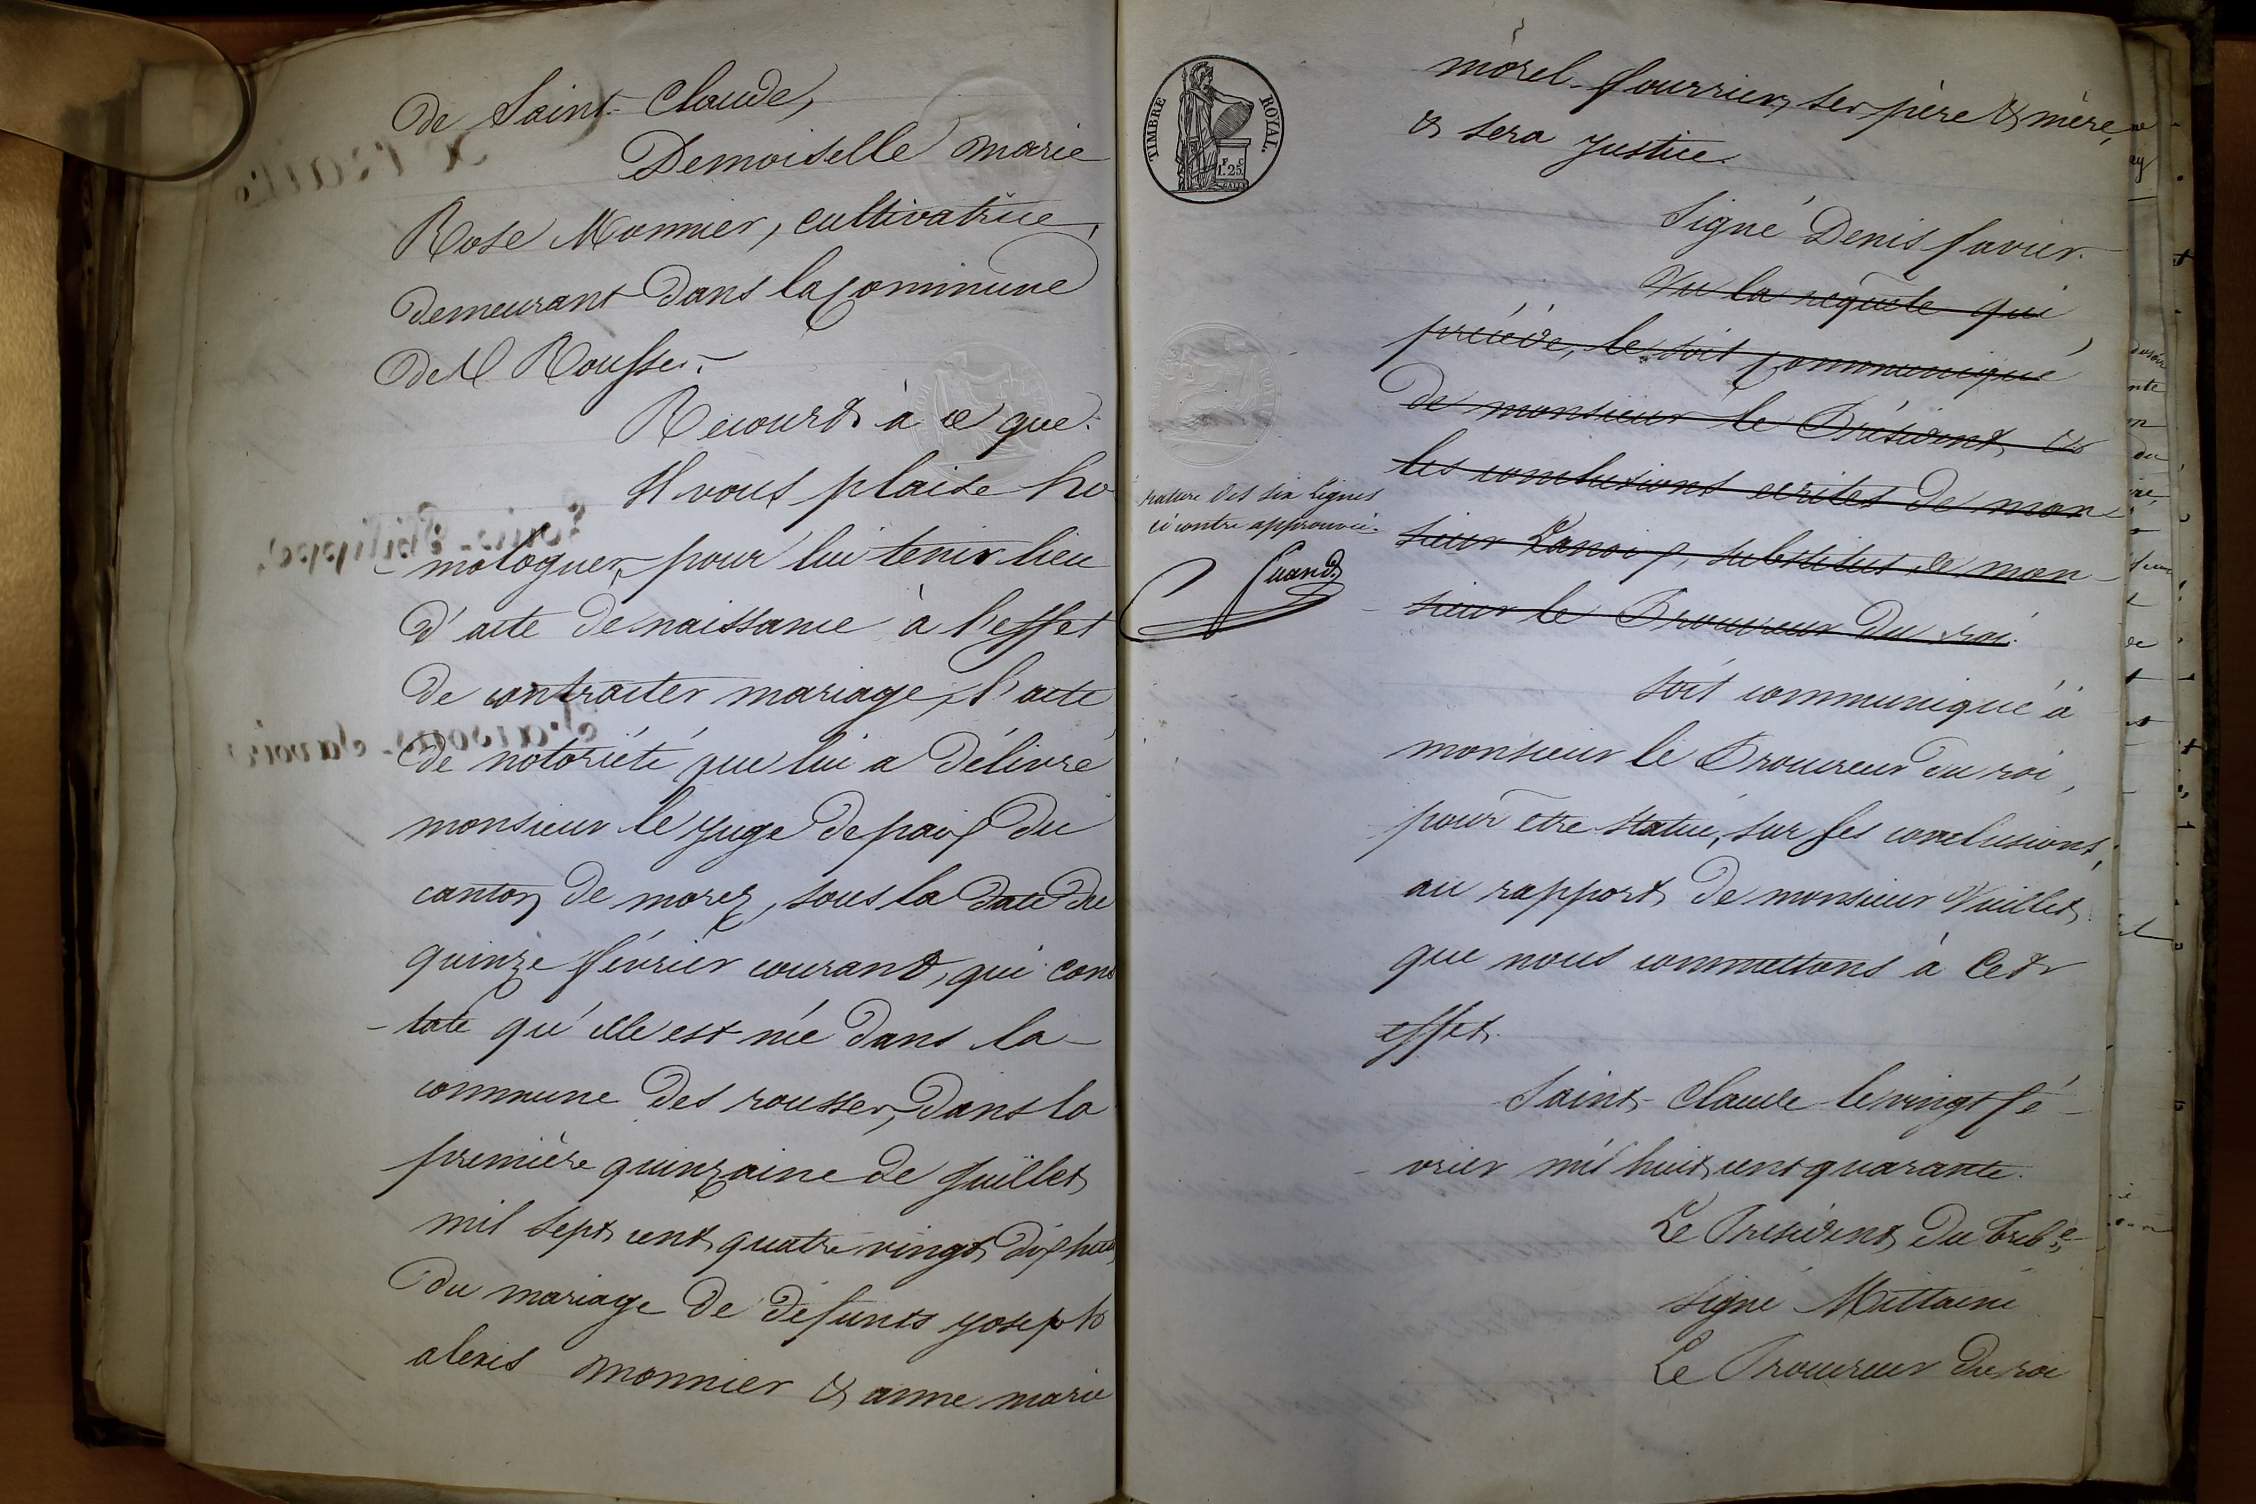 de Saint-Claude,
Demoiselle marie
Rose Monnier, cultivatrice,
demeurant dans la Commune
des Rousses.
Recourt à ce que:
Il vous plaise ho
-mologuer, pour lui tenir lieu
d'acte de naissance à l'effet
de contracter mariage, l'acte
de notoriété que lui a délivré
monsieur le juge de paix du
canton de morez, sous la date du
quinze février courant, qui cons
-tate qu'elle est née dans la
commune des rousses, dans la
première quinzaine de Juillet
mil sept cent quatre vingt dix huit,
du mariage de défunts joseph
alexis monnier & anne marie
TIMBRE ROYAL.
F. C.
1.25
morel-fourrier, ses père & mère,
& sera justice.
Signé Denis favier.
Vu la requête qui
précède, le soit communiqué
de monsieur le Président &
les conclusions écrites de mon
sieur substitut de mon-
-sieur le Procureur du roi.
rature des six lignes
ci contre approuvée
soit communiqué à
monsieur le Procureur du roi,
pour être statué, sur ses conclusions,
au rapport de monsieur Vuillet
que nous commettons à cet
effet.
Saint-Claude le vingt fé-
-vrier mil huit cent quarante.
Le Président du Trib.
signé
Le Procureur du roi